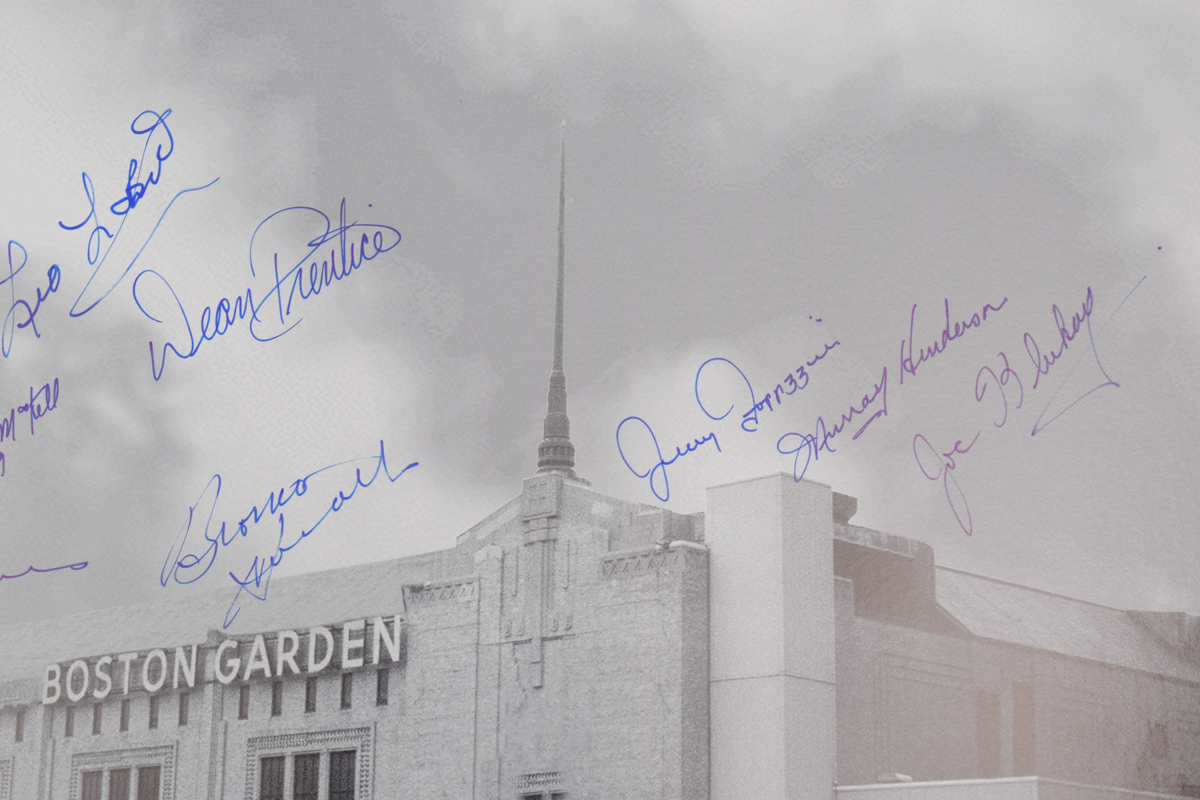 Leo
Dean Prentice
Jerry Toppazzini
Murray Henderson
Joe Klukay
Bronco
Horvath
BOSTON GARDEN